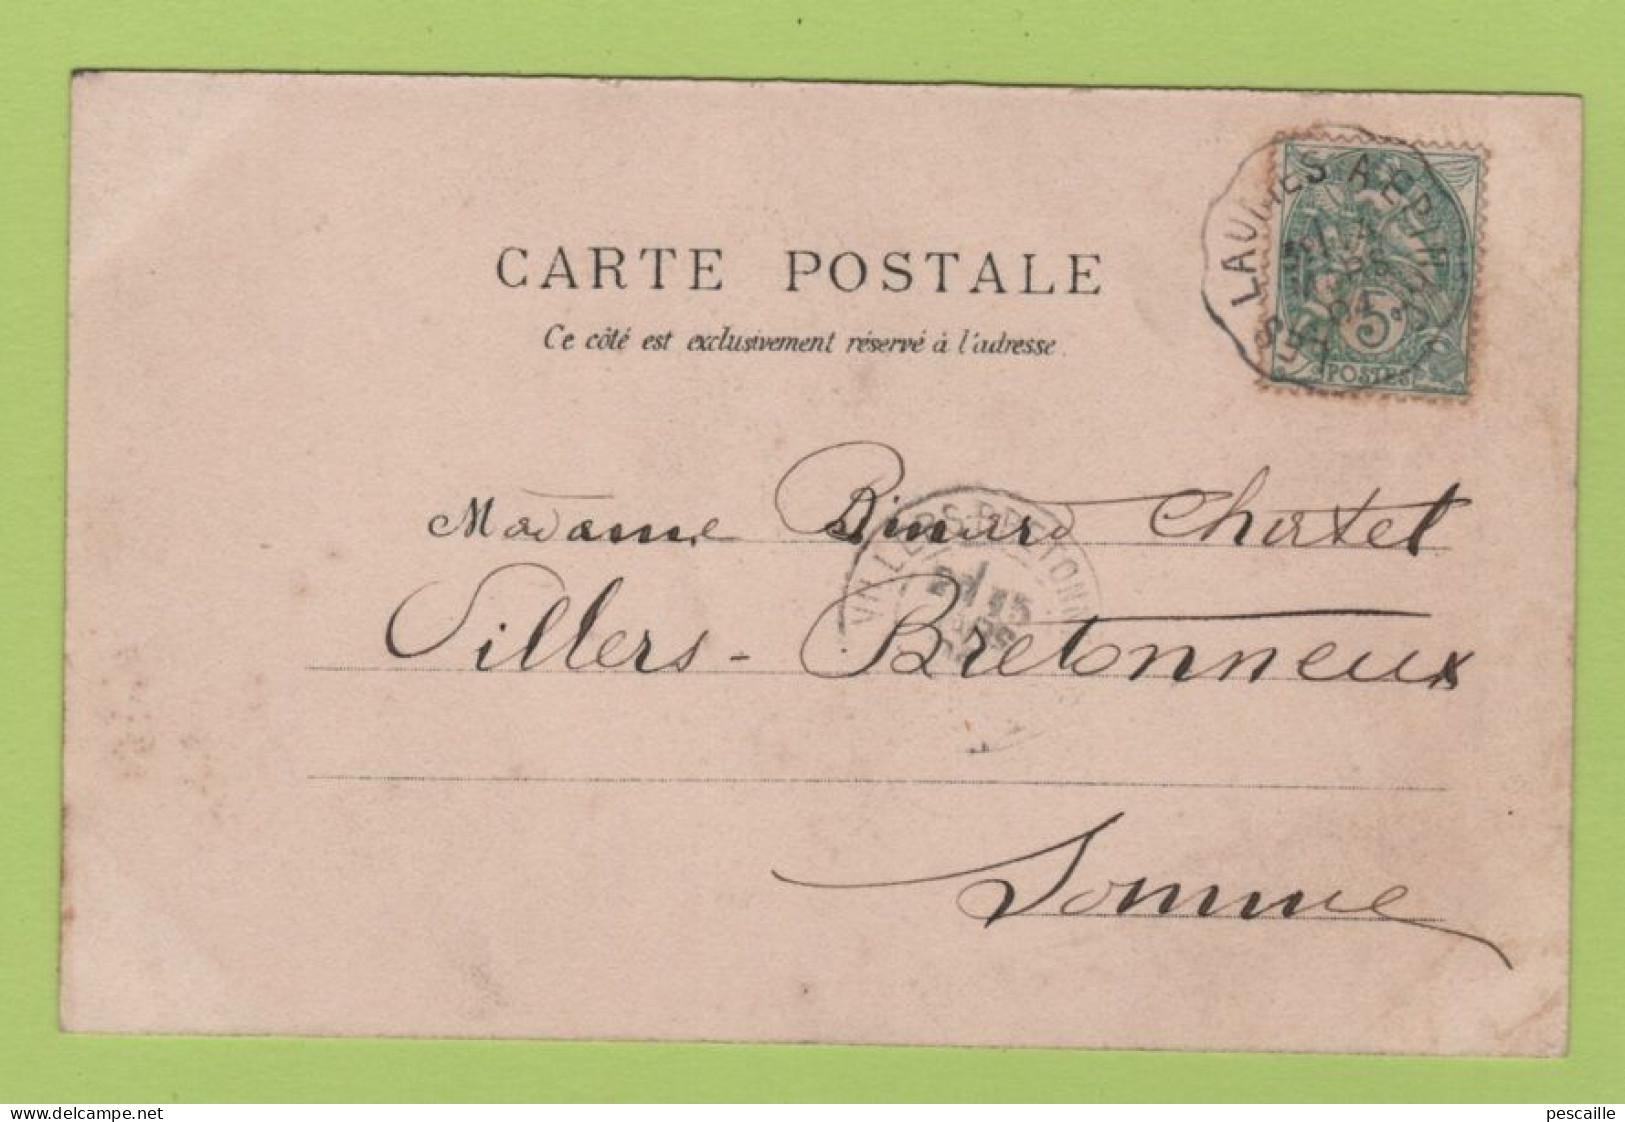 CARTE POSTALE
Ce côté est exclusivement réservé à l'adresse.
LES LAUMES A EPINAC
04
5
POSTES
Madame Binard Chatel
VILLERS-BRETONN
Villers-Bretonneux
Somme
www.delcampe.net
pescaille